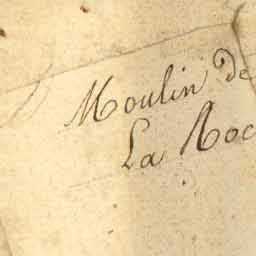 Moulin de
La Roc